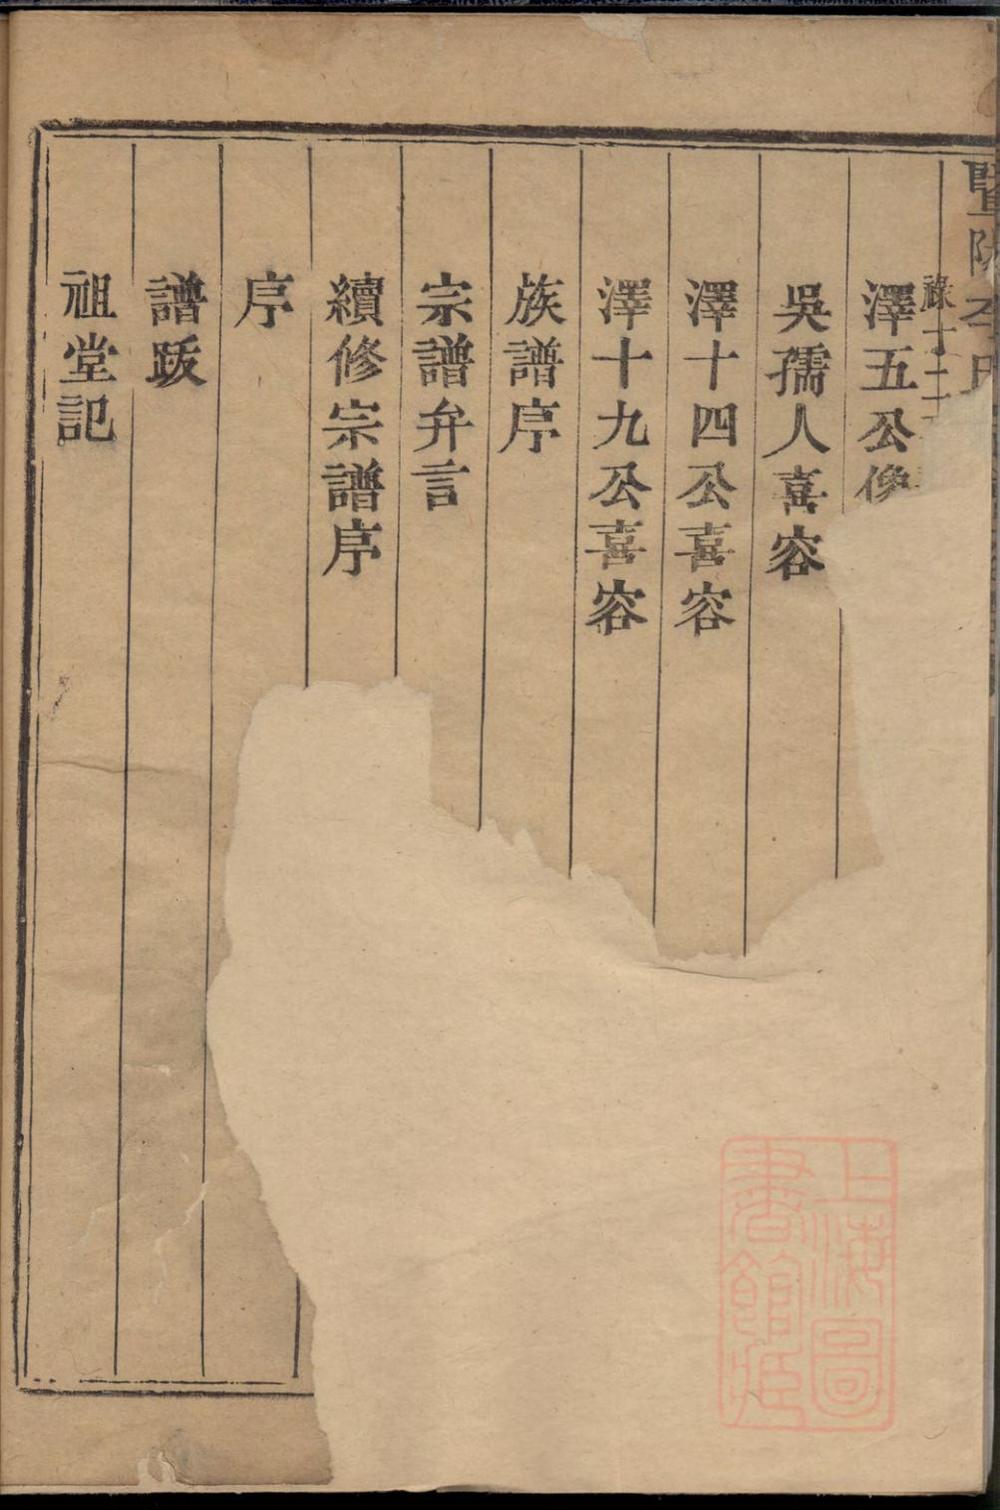 暨陽李氏
祿十二
澤五公像
吳孺人喜容
澤十四公喜容
澤十九公喜容
族譜序
宗譜弁言
續修宗譜序
序
譜跋
祖堂記
上海圖
書館藏